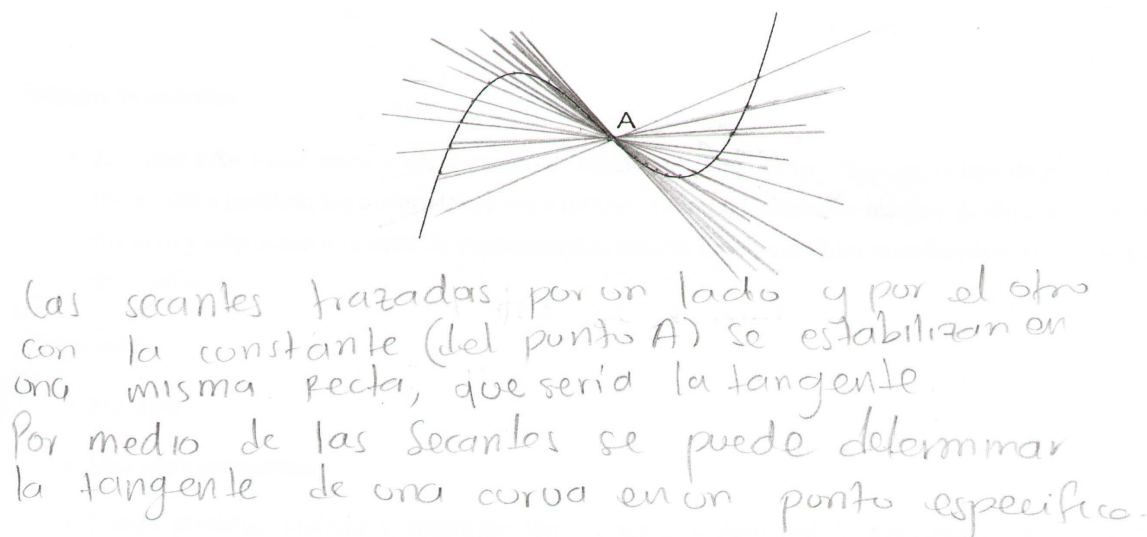 A
Las secantes trazadas por un lado y por el otro
con la constante (del punto A) se estabilizan en
una misma recta, que sería la tangente.
Por medio de las secantes se puede determinar
la tangente de una curva en un punto especifico.